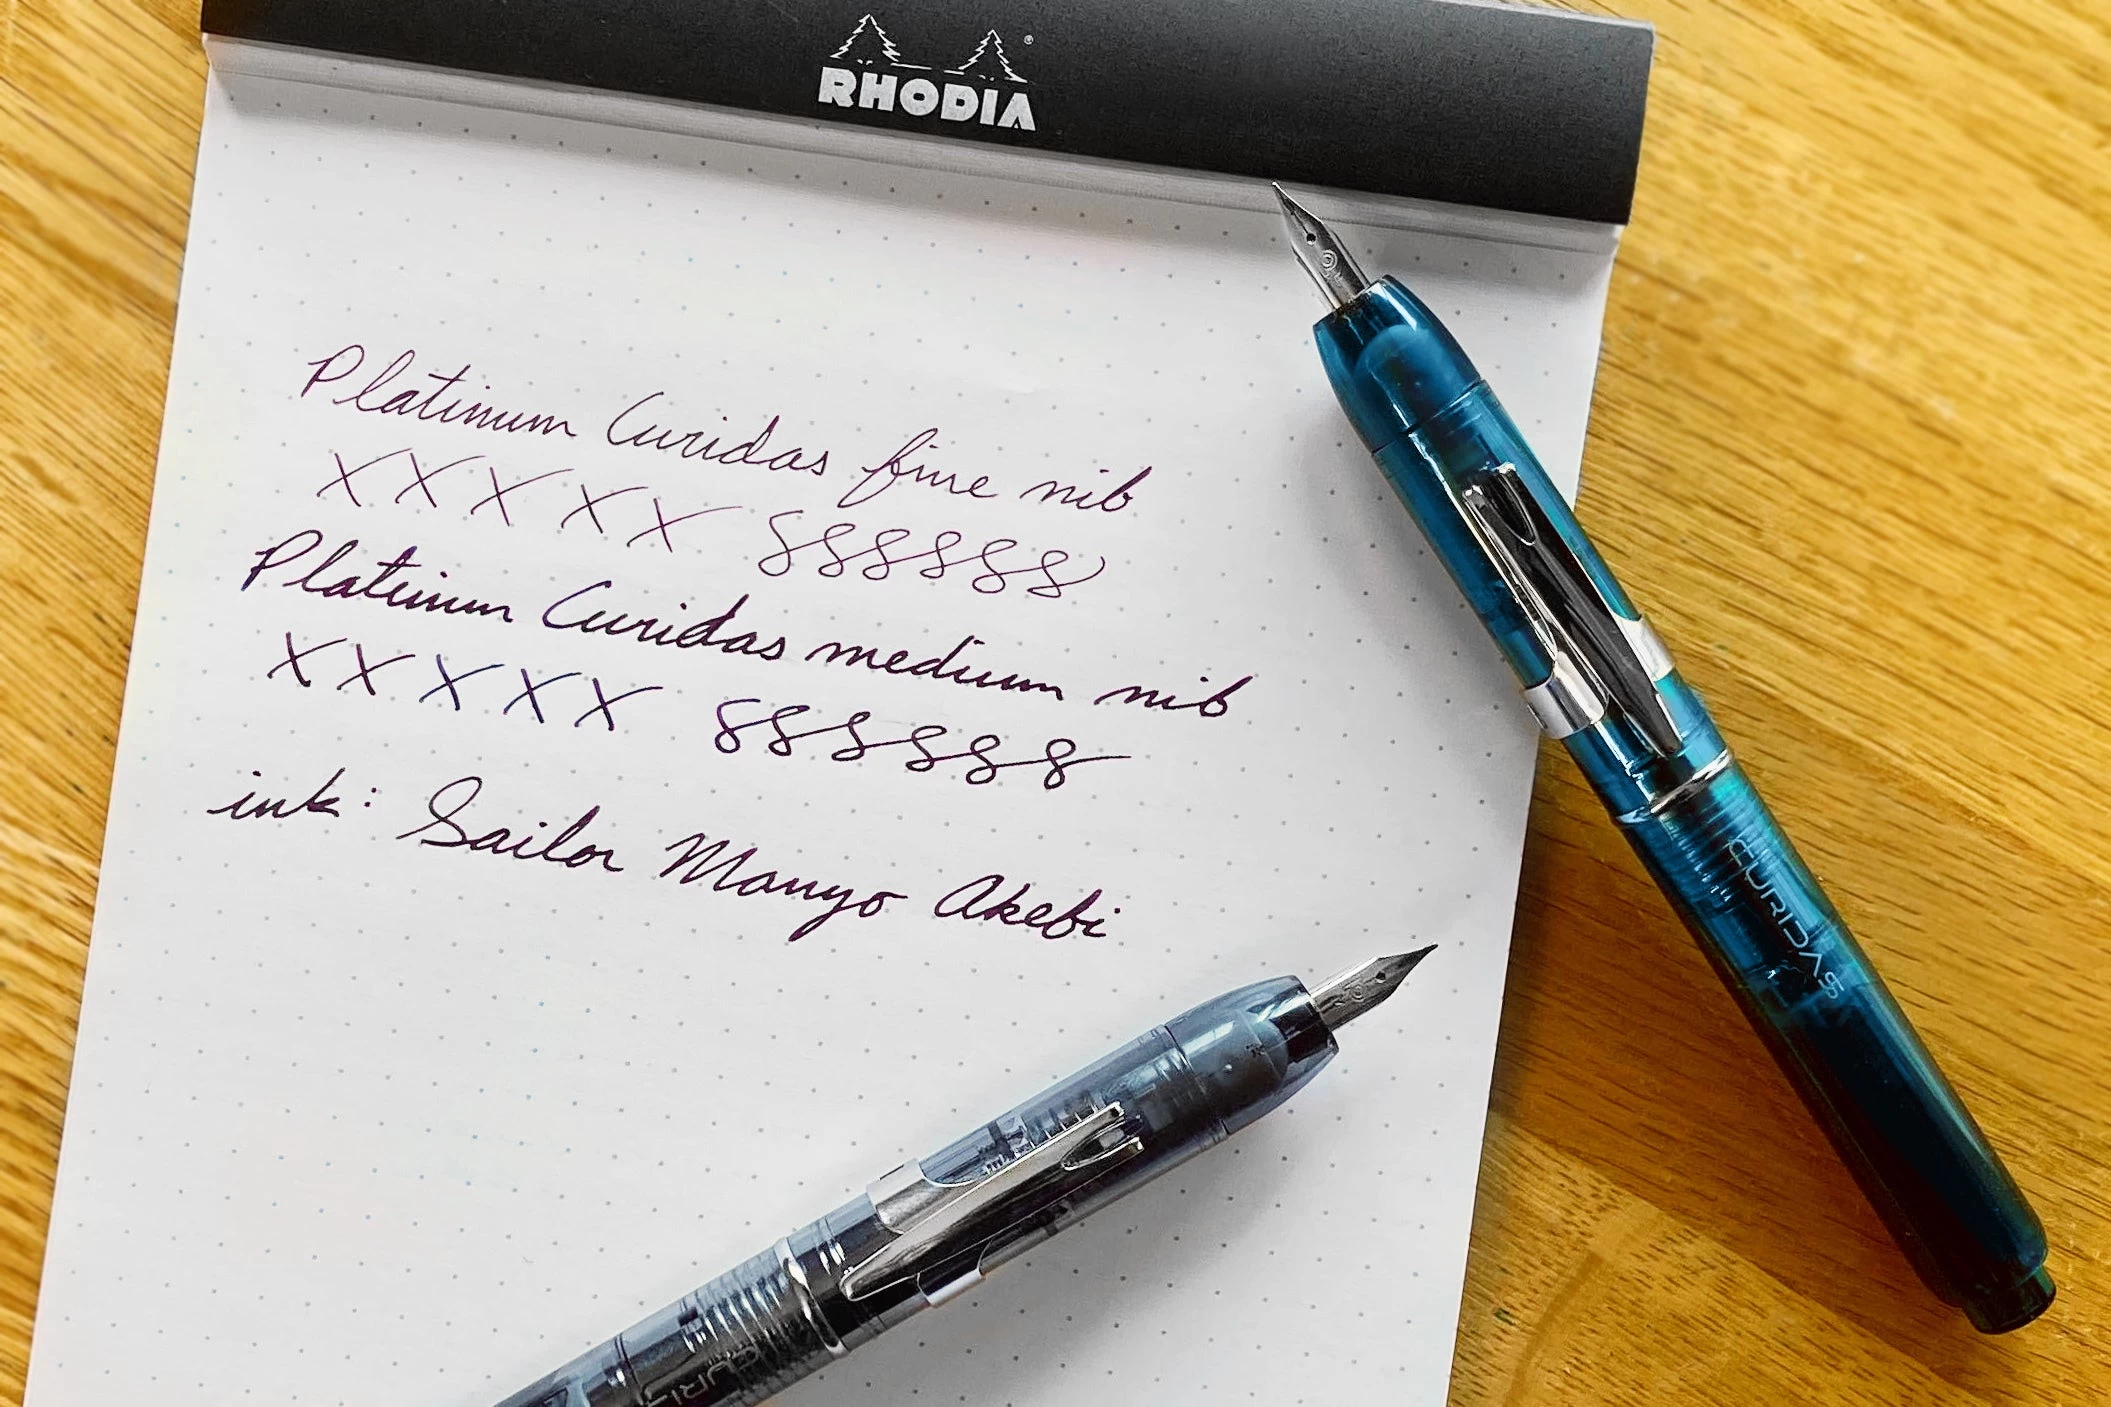 RHODIA
Platinum Curidas fine nib
X X X X X 888888
Platinum Curidas medium nib
X X X X X 888888
ink: Sailor Manyo Akebi
CURIDAS
CURIDAS